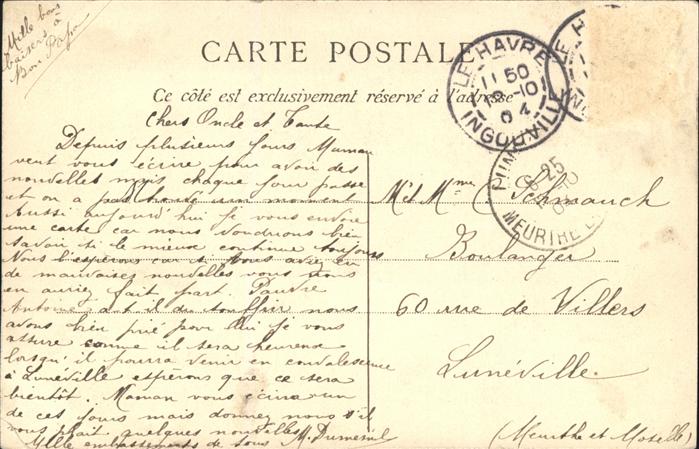 Mille bons
baisers à
Bon Papa
CARTE POSTALE
Ce côté est exclusivement réservé à l'adresse
LE HAVRE
11 50
10
04
INGOUVILLE
LE H
IN
LUN
25
MEURTHE E
Chers Oncle et Tante
Depuis plusieurs jours Maman
veut vous écrire pour avoir des
nouvelles mais chaque jour passe
et on a pas un moment
Aussi aujourd'hui je vous envoie
une carte car nous voudrions bien
savoir si le mieux continue toujours
Nous l'espérons car si vous aviez eu
de mauvaises nouvelles vous nous
en auriez fait part. Pauvre
Antoine a t il du souffrir nous
avons bien prié pour lui je vous
assure comme il sera heureux
lorsqu'il pourra venir en convalescence
à Lunéville espérons que ce sera
bientôt. Maman vous écrira un
de ces jours mais donnez nous s'il
vous plait quelques nouvelles
Mille embrassements de tous M. Dumesnil
M et Mme C. Schmauch
Boulanger
60 rue de Villers
Lunéville
(Meurthe et Moselle)